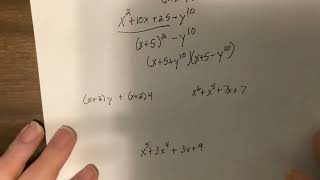 x² + 10x + 25 - y¹⁰
(x+5)² - y¹⁰
(x+5+y¹⁰)(x+5-y¹⁰)
(x+2)y + (x+2)4 x⁶+x⁵+7x+7
x⁵+3x⁴+3x+9